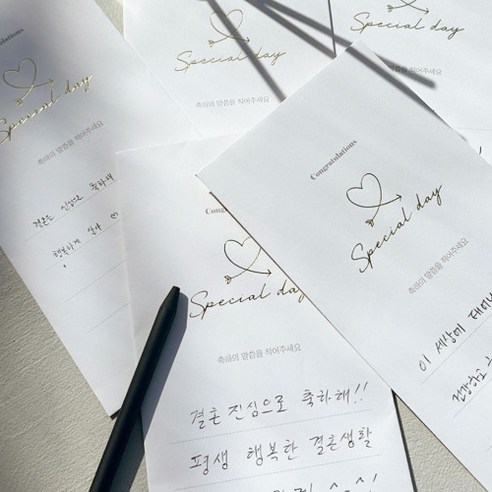 Congratulations
Special day
축하의 말씀을 적어주세요
결혼 진심으로 축하해
행복하게 살아 ♡
Special day
축하의 말씀을 적어주세요
Special day
Special day
축하의 말씀을 적어주세요
결혼 진심으로 축하해!!
평생 행복한 결혼생활
Congratulations
Special day
축하의 말씀을 적어주세요
이 세상에
건강하고